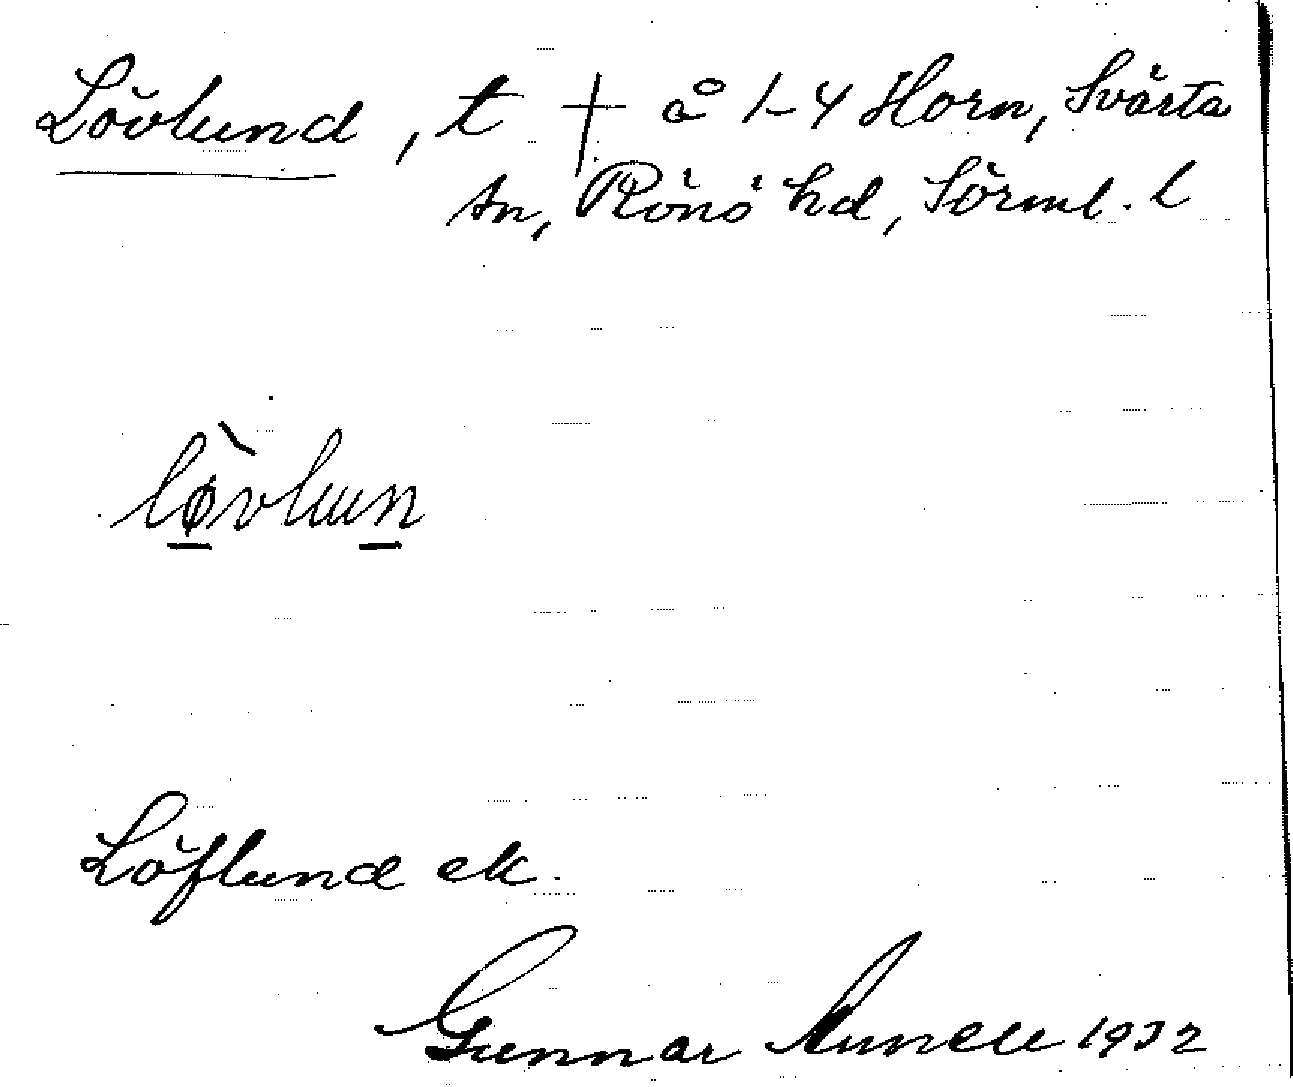 Lövlund, t † å 1-4 Horn, Svärta
sn, Rönö hd, Sörml. l
lø̀vlun
Löflund ek.
Gunnar 1932